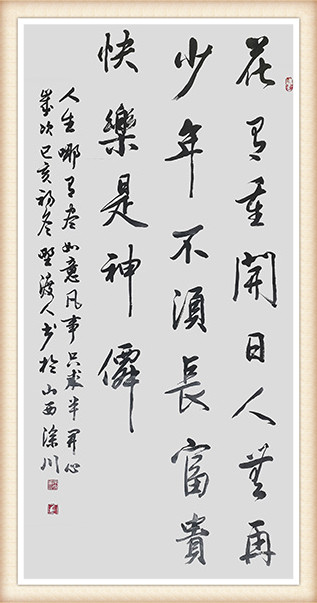 花有重開日人無再
少年不須長富貴
快樂是神僊
人生哪有盡如意凡事只求半開心
歲次己亥初冬野渡人书於山西川